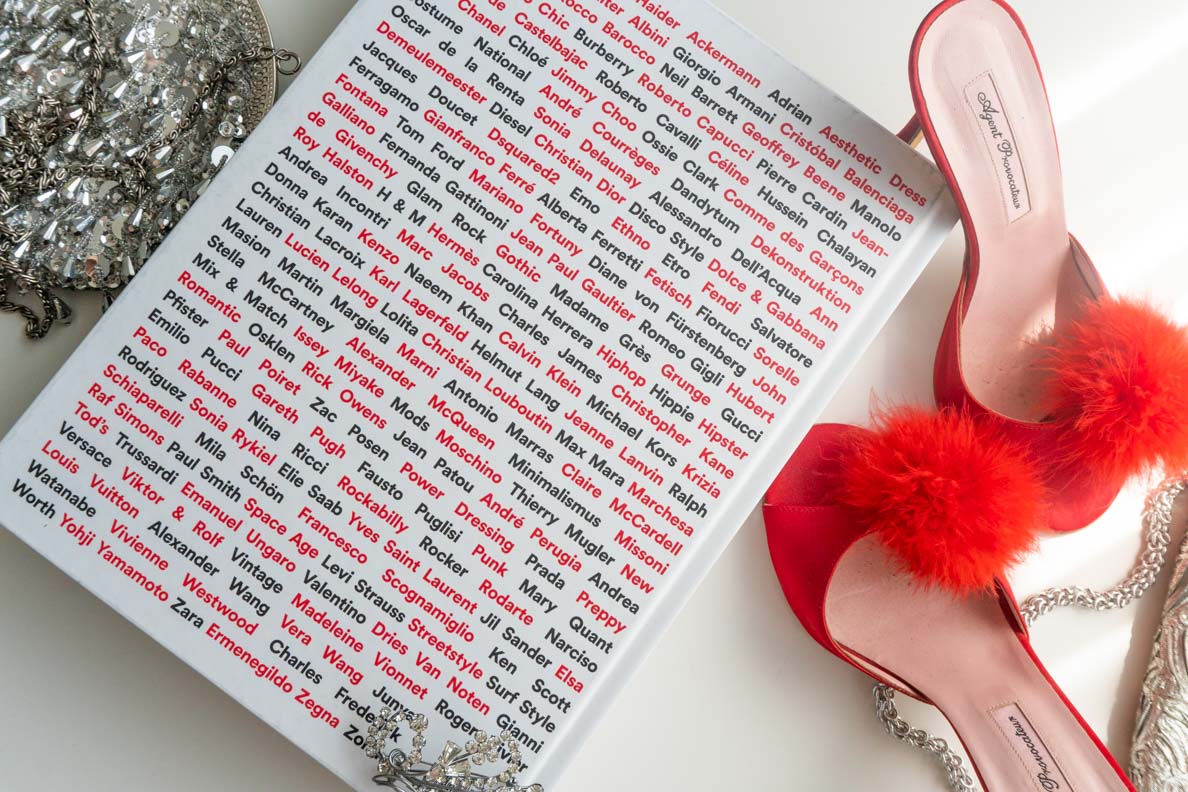 Haider Ackermann Adrian Aesthetic Dress
Albini Giorgio Armani Cristóbal Balenciaga
Rocco Barocco Neil Barrett Geoffrey Beene Manolo
Chic Burberry Roberto Capucci Pierre Cardin Jean-
de Castelbajac Roberto Cavalli Céline Hussein Chalayan
Chanel Chloé Jimmy Choo Ossie Clark Comme des Garçons
Costume National André Courrèges Dandytum Dekonstruktion
Oscar de la Renta Sonia Delaunay Alessandro Dell'Acqua Ann
Demeulemeester Diesel Christian Dior Disco Style Dolce & Gabbana
Jacques Doucet Dsquared2 Emo Ethno Etro Fendi Salvatore
Ferragamo Gianfranco Ferré Alberta Ferretti Fetisch Fiorucci Sorelle
Fontana Tom Ford Mariano Fortuny Diane von Fürstenberg John
Galliano Fernanda Gattinoni Jean Paul Gaultier Romeo Gigli Hubert
de Givenchy Glam Rock Gothic Madame Grès Grunge Gucci
Roy Halston H & M Hermès Carolina Herrera Hiphop Hippie Hipster
Andrea Incontri Marc Jacobs Charles James Christopher Kane
Donna Karan Kenzo Naeem Khan Calvin Klein Michael Kors Krizia
Christian Lacroix Karl Lagerfeld Helmut Lang Jeanne Lanvin Ralph
Lauren Lucien Lelong Lolita Christian Louboutin Max Mara Marchesa
Masion Martin Margiela Marni Antonio Marras Claire McCardell
Stella McCartney Alexander McQueen Minimalismus Missoni
Mix & Match Issey Miyake Mods Moschino Thierry Mugler New
Romantic Osklen Rick Owens Jean Patou André Perugia Andrea
Pfister Paul Poiret Zac Posen Power Dressing Prada Preppy
Emilio Pucci Gareth Pugh Fausto Puglisi Punk Mary Quant
Paco Rabanne Nina Ricci Rockabilly Rocker Rodarte Narciso
Rodriguez Sonia Rykiel Elie Saab Yves Saint Laurent Jil Sander Elsa
Schiaparelli Mila Schön Francesco Scognamiglio Ken Scott
Raf Simons Paul Smith Space Age Levi Strauss Streetstyle Surf Style
Tod's Trussardi Emanuel Ungaro Valentino Dries Van Noten Gianni
Versace Viktor & Rolf Vintage Madeleine Vionnet Roger Vivier
Louis Vuitton Alexander Wang Vera Wang Junya
Watanabe Vivienne Westwood Charles Frederick
Worth Yohji Yamamoto Zara Ermenegildo Zegna
Agent Provocateur
Agent Provocateur